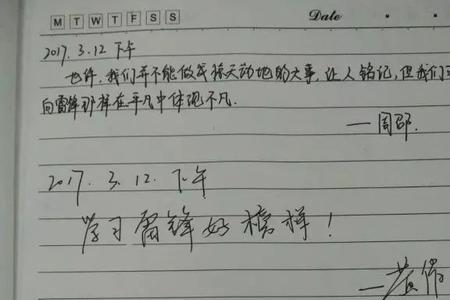 M T W T F S S Date
2017. 3. 12 下午
也许,我们并不能做成惊天动地的大事,让人铭记,但我们
向雷锋那样在平凡中体现不凡.
—周邵.
2017. 3. 12. 下午
学习雷锋好榜样!